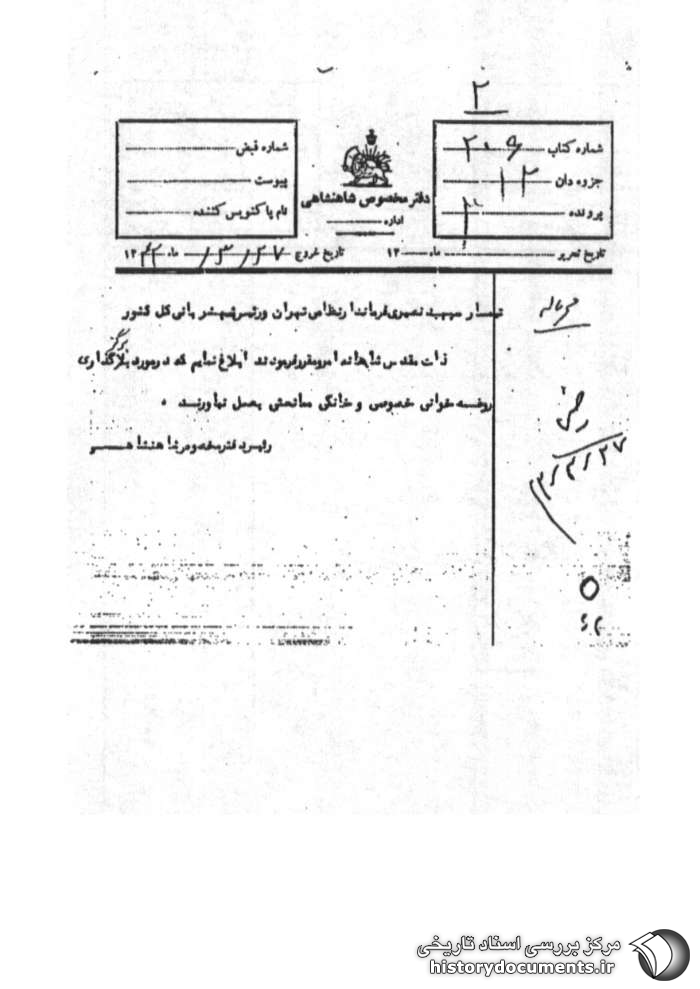 ۲
شماره کتاب
جزوه دان ۱۲
پرونده
دفتر مخصوص شاهنشاهی
اداره
شماره قبض
پیوست
نام پاکنویس کننده
تاریخ تحریر ماه ۱۳
تاریخ خروج ۲۷/۳/ ماه ۱۳۴۲
محرمانه
تیمسار سپهبد نصیری فرماندار نظامی تهران و رئیس شهربانی کل کشور
ذات مقدس شاهانه امر و مقرر فرمودند ابلاغ نمایم که در مورد برگزاری
برگز
روضه خوانی خصوصی و خانگی ممانعتی بعمل نیاورند .
رئیس دفتر مخصوص شاهنشاهی
۲۷/۳/
مرکز بررسی اسناد تاریخی
historydocuments.ir